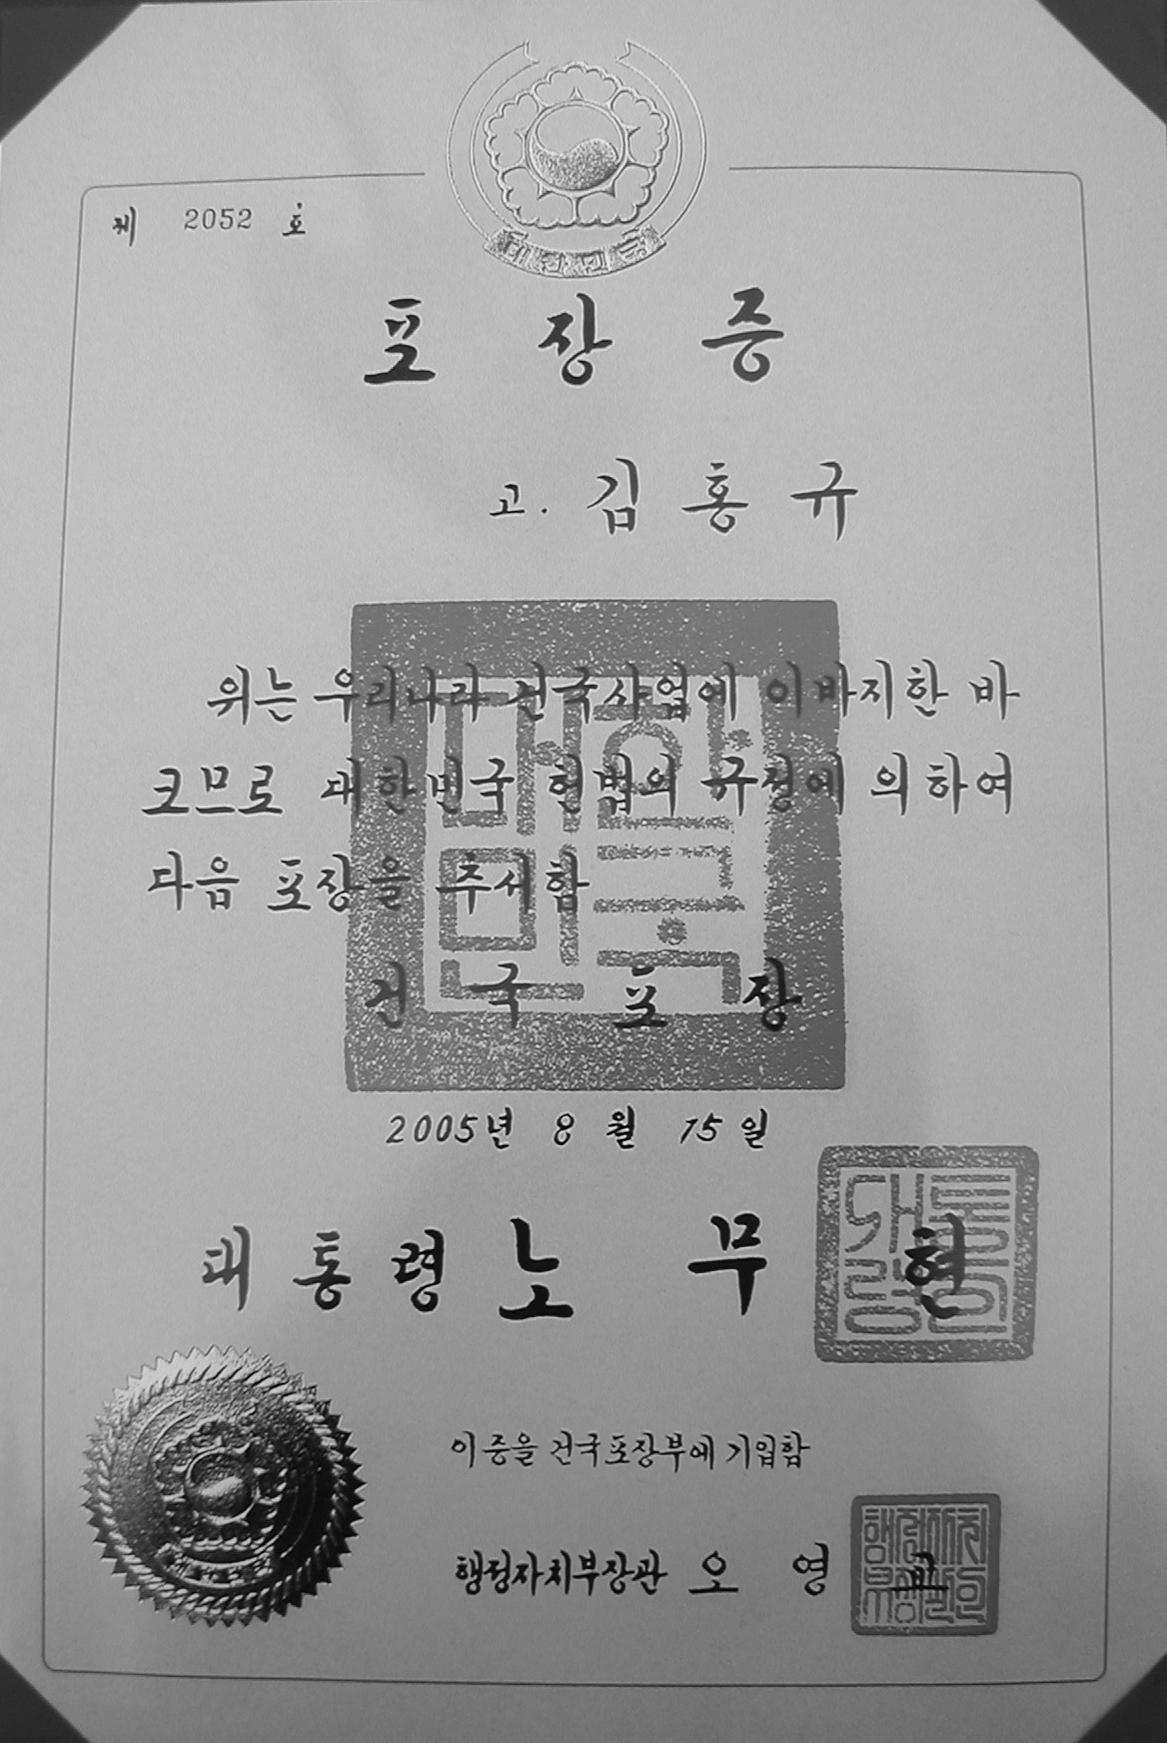 대한민국
제 2052 호
포 장 증
고. 김 홍 규
위는 우리나라 건국사업에 이바지한 바
크므로 대한민국 헌법의 규정에 의하여
다음 포장을 추서함
건 국 포 장
2005년 8 월 15 일
대 통 령 노 무 현
이 증을 건국포장부에 기입함
행정자치부장관 오 영 교